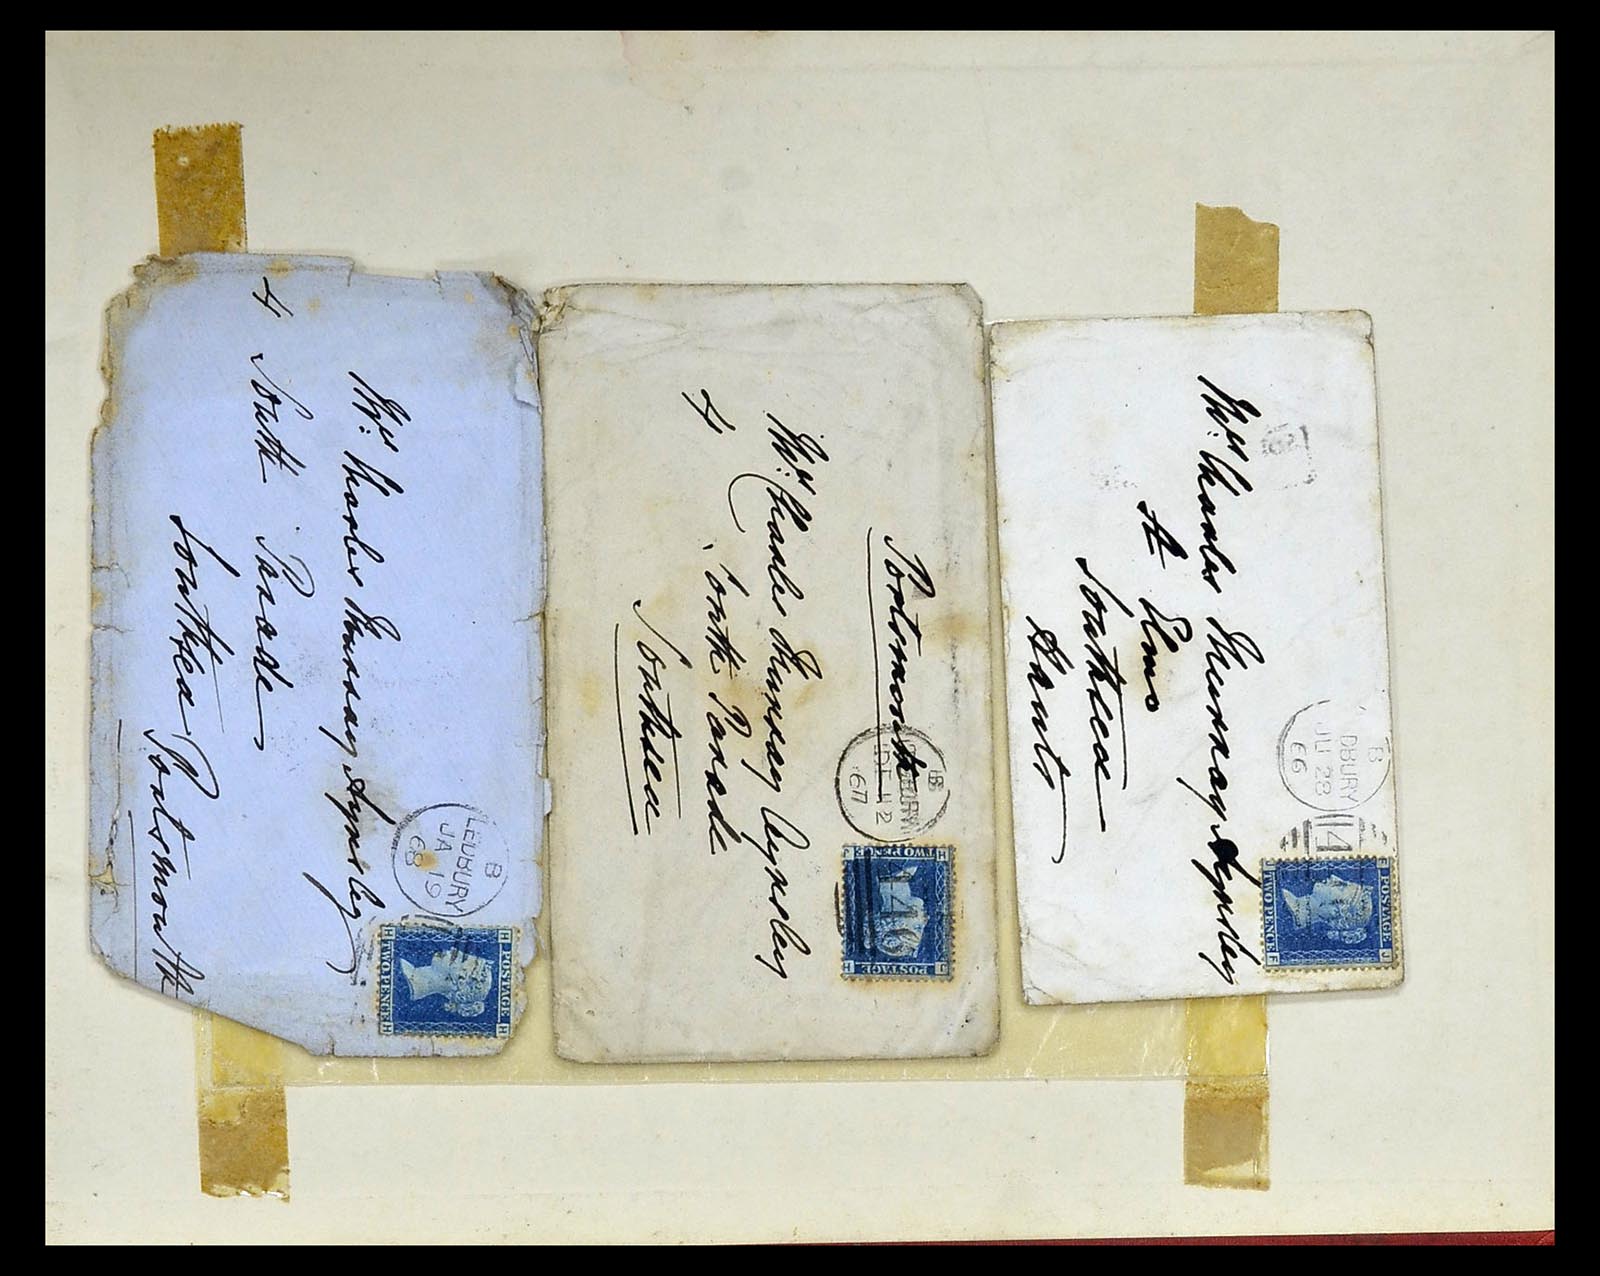 4
Mrs. Charles Murray Aynsley
South Parade
Southsea Portsmouth
LEDBURY
B
JA 19
68
H POSTAGE H
H TWO PENCE H
Portsmouth
Mrs. Charles Murray Aynsley
4 South Parade
Southsea
B
DE 12
67
446
J POSTAGE H
H TWO PENCE J
Mrs. Charles Murray Aynsley
St Elmo
Southsea
Hants
B
DBURY
JU 28
66
44
F POSTAGE J
J TWO PENCE F